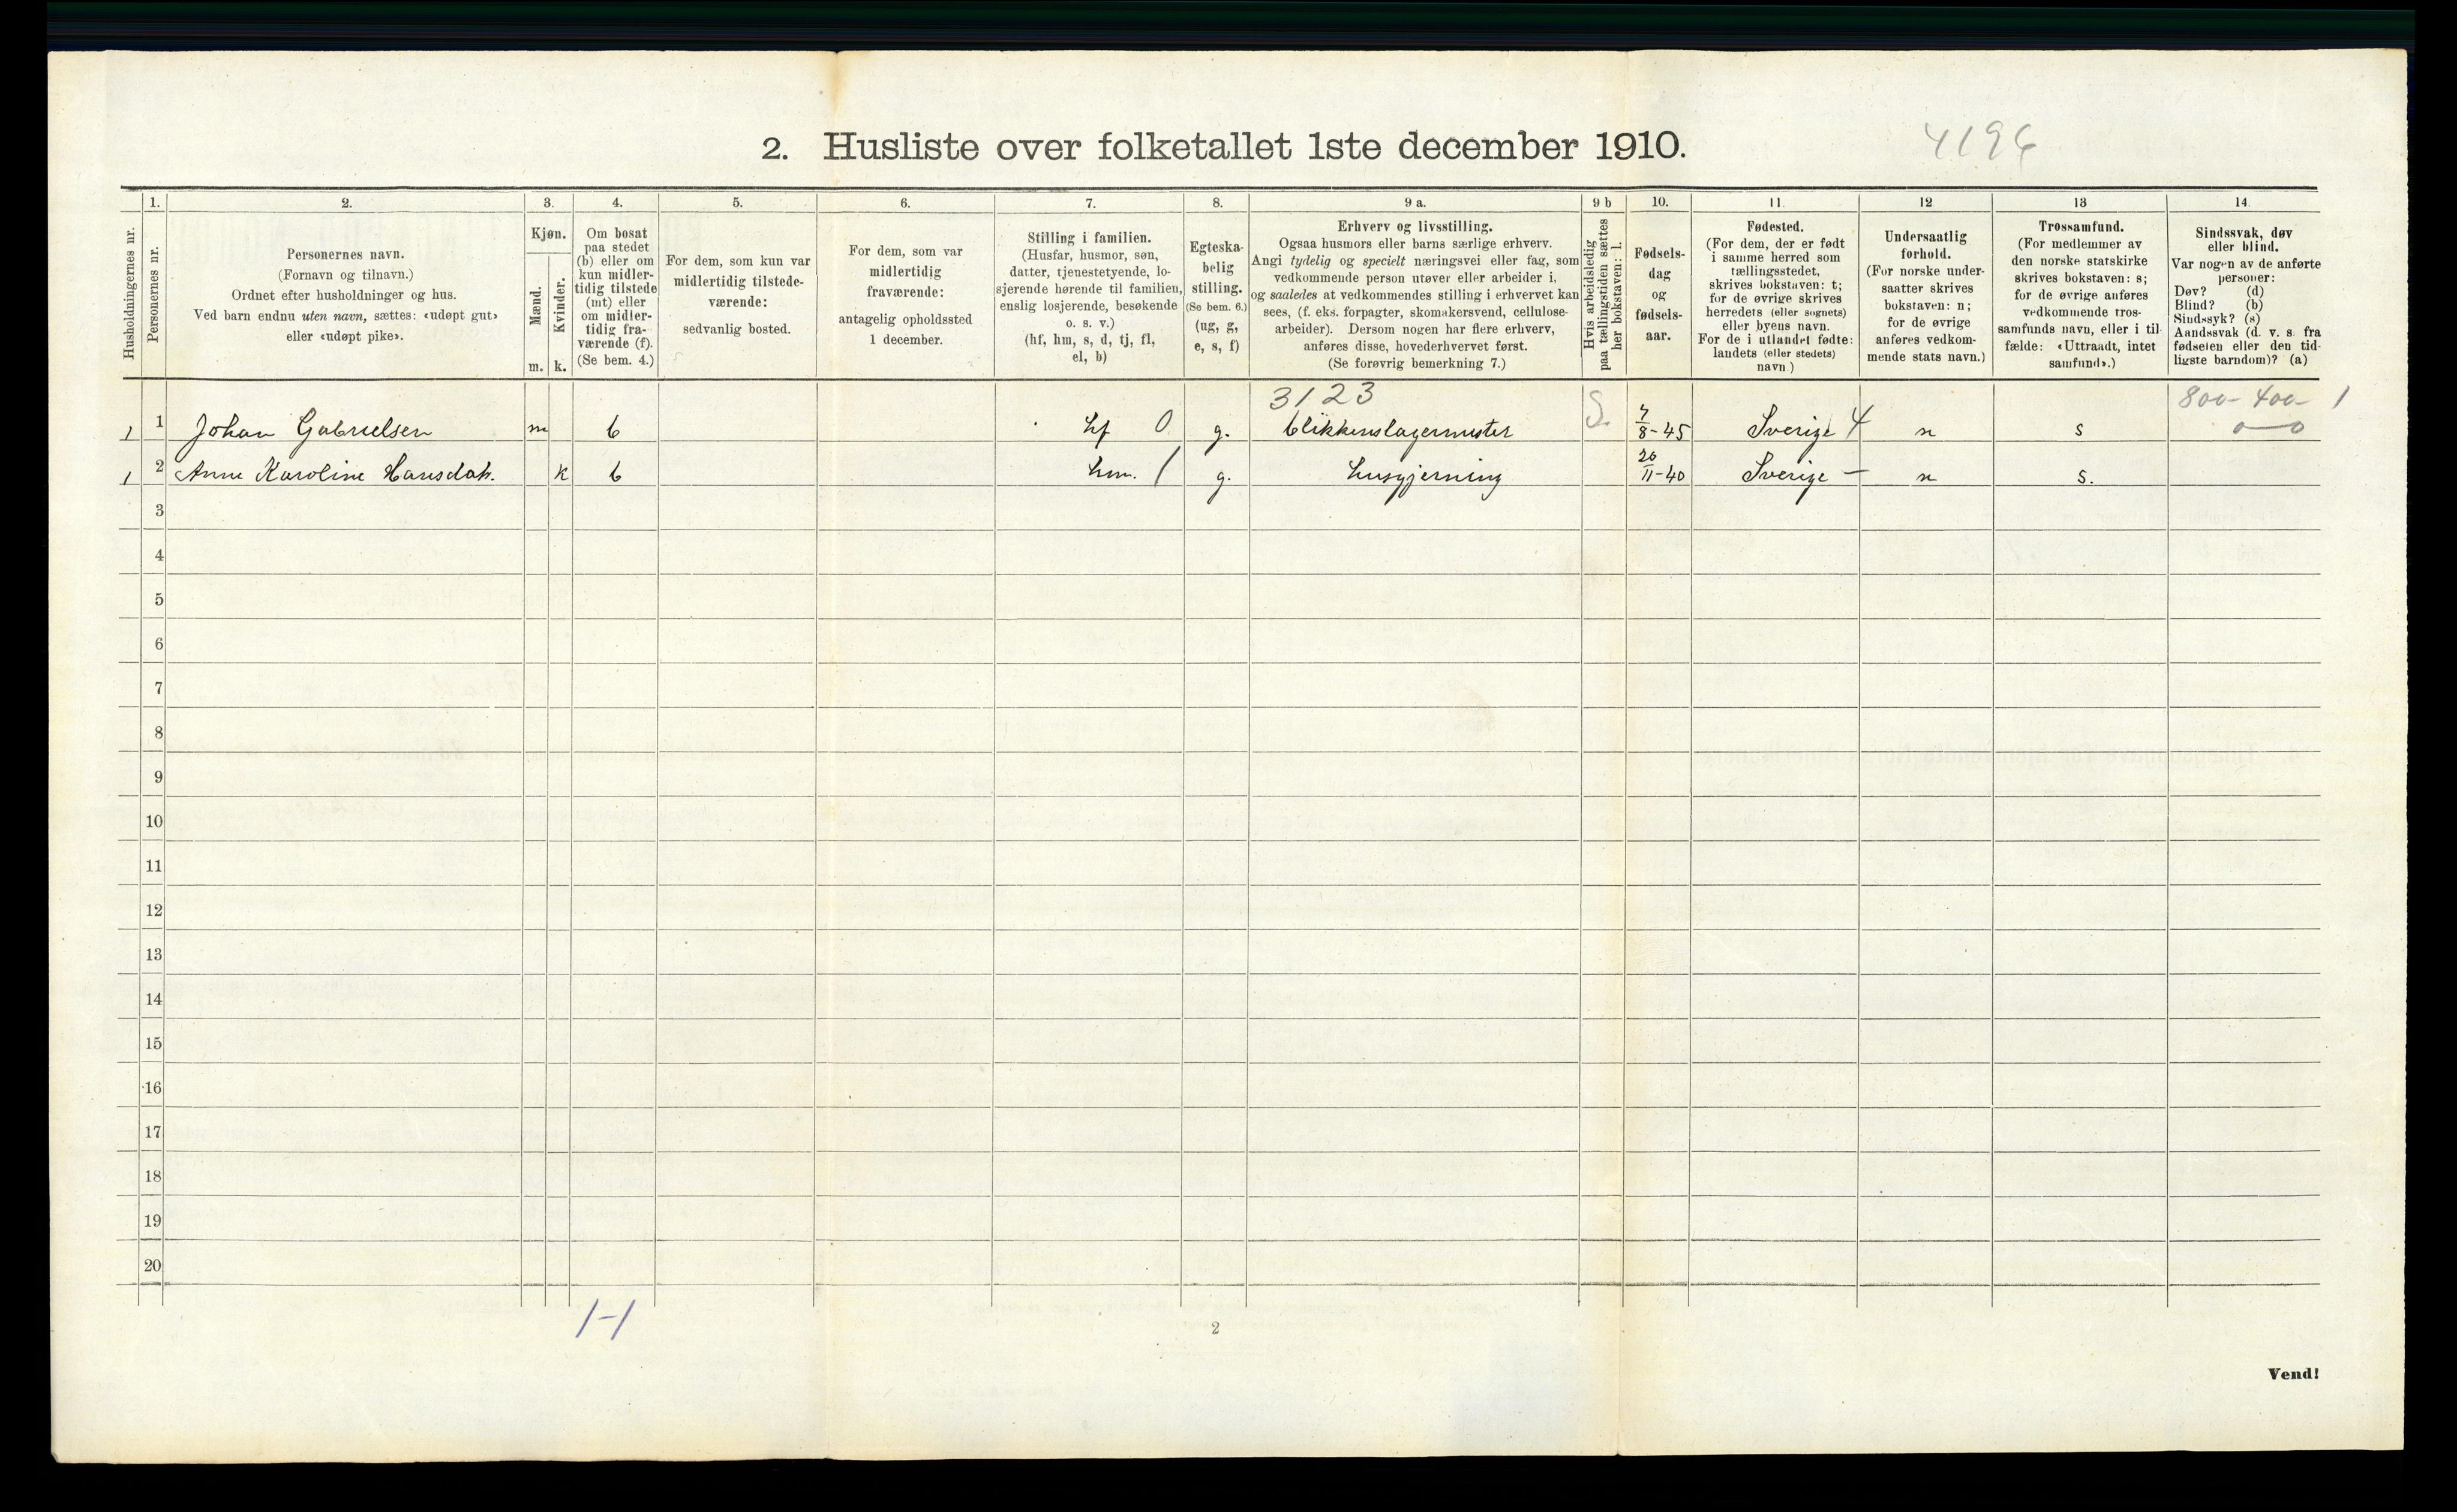 2. Husliste over folketallet 1ste december 1910.
4196
Husholdningernes nr.
1.
Personernes nr.
2.
Personernes navn.
(Fornavn og tilnavn.)
Ordnet efter husholdninger og hus.
Ved barn endnu uten navn, sættes: «udøpt gut»
eller «udøpt pike».
3.
Kjøn.
Mænd.
Kvinder.
m.
k.
4.
Om bosat
paa stedet
(b) eller om
kun midler-
tidig tilstede
(mt) eller
om midler-
tidig fra-
værende (f).
(Se bem. 4.)
5.
For dem, som kun var
midlertidig tilstede-
værende:
sedvanlig bosted.
6.
For dem, som var
midlertidig
fraværende:
antagelig opholdssted
1 december.
7.
Stilling i familien.
(Husfar, husmor, søn,
datter, tjenestetyende, lo-
sjerende hørende til familien,
enslig losjerende, besøkende
o. s. v.)
(hf, hm, s, d, tj, fl,
el, b)
8.
Egteska-
belig
stilling.
(Se bem. 6.)
(ug, g,
e, s, f)
9 a.
Erhverv og livsstilling.
Ogsaa husmors eller barns særlige erhverv.
Angi tydelig og specielt næringsvei eller fag, som
vedkommende person utøver eller arbeider i,
og saaledes at vedkommendes stilling i erhvervet kan
sees, (f. eks. forpagter, skomakersvend, cellulose-
arbeider). Dersom nogen har flere erhverv,
anføres disse, hovederhvervet først.
(Se forøvrig bemerkning 7.)
9 b
Hvis arbeidsledig
paa tællingstiden sættes
her bokstaven: l.
10.
Fødsels-
dag
og
fødsels-
aar.
11.
Fødested.
(For dem, der er født
i samme herred som
tællingsstedet,
skrives bokstaven: t;
for de øvrige skrives
herredets (eller sognets)
eller byens navn.
For de i utlandet fødte:
landets (eller stedets)
navn.)
12
Undersaatlig
forhold.
(For norske under-
saatter skrives
bokstaven: n;
for de øvrige
anføres vedkom-
mende stats navn.)
13
Trossamfund.
(For medlemmer av
den norske statskirke
skrives bokstaven: s;
for de øvrige anføres
vedkommende tros-
samfunds navn, eller i til-
fælde: «Uttraadt, intet
samfund».)
14.
Sindssvak, døv
eller blind.
Var nogen av de anførte
personer:
Døv? (d)
Blind? (b)
Sindssyk? (s)
Aandssvak (d. v. s. fra
fødselen eller den tid-
ligste barndom)? (a)
3123
800- 400- 1
1 1 Johan Gabrielsen m b hf 0 g. blikkenslagermester S. 7/8-45 Sverige 4 n s 0-0
1 2 Anne Karoline Hansdatr. k b hm. 1 g. husgjerning 20/11-40 Sverige - n s.
3
4
5
6
7
8
9
10
11
12
13
14
15
16
17
18
19
20
1-1
2
Vend!